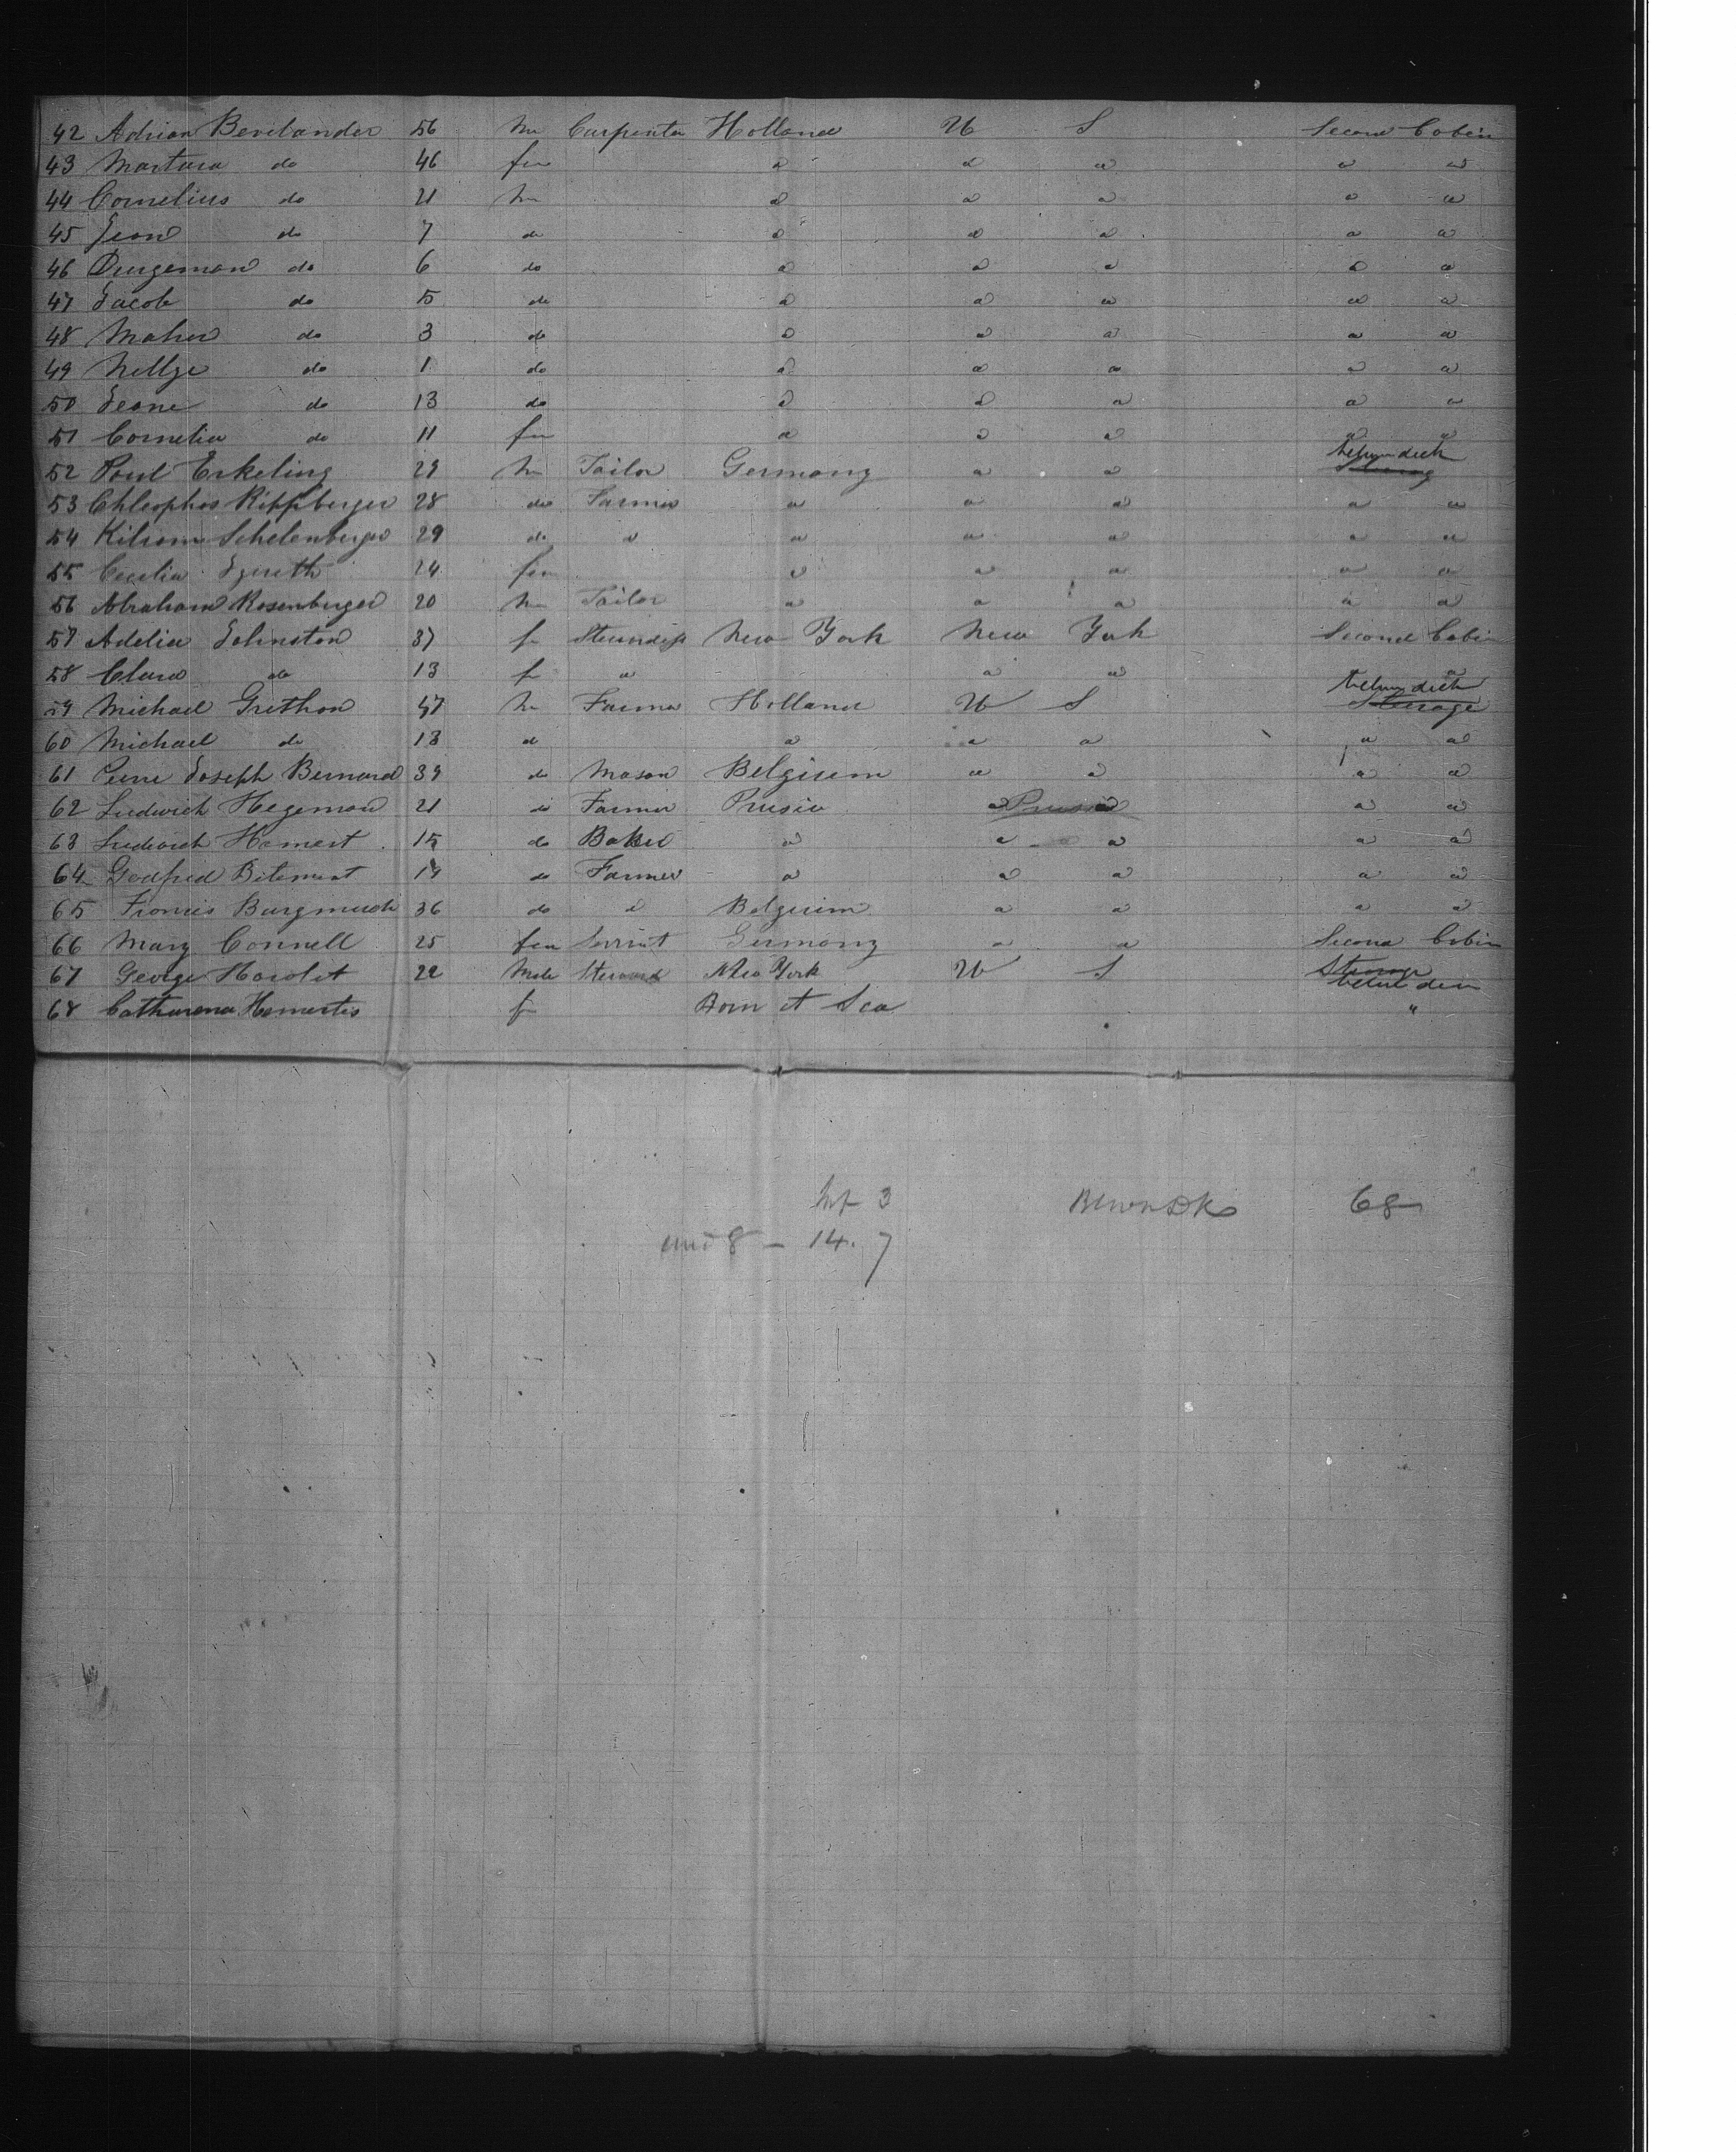 42 Adrian Bevelander 56 m Carpenter Holland U S Second Cabin
43 Martina do 46 fm " " " " "
44 Cornelius do 21 m " " " " "
45 Jean do 7 do " " " " "
46 do 6 do " " " " "
47 Jacob do 5 do " " " " "
48 do 3 do " " " " "
49 Nellge do 1 do " " " " "
50 Jeane do 13 do " " " " "
51 Cornelia do 11 fm " " " " "
52 Paul Erkeling 29 m Tailor Germany " " between deck
53 Chleophos Rippberger 28 do Farmer " " " " "
54 Schelenberger 29 do " " " " " "
55 Cecilia 24 fem " " " " "
56 Abraham Rosenberger 20 m Tailor " " " " "
57 Adelia Johnston 37 f New York New York Second Cabin
58 Clara do 13 f " " " "
59 Michael Grethon 47 m Farmer Holland U S between deck Steerage
60 Michael do 13 do " " " " "
61 Joseph Bernard 39 do Mason Belgium " " " "
62 Ludwich Hegeman 21 do Farmer Prusia " Prusia " "
63 Ludwich Hemert 15 do Baker " " " " "
64 Godfred 19 do Farmer " " " " "
65 Francis 36 do " Belguim " " " "
66 Mary Connell 25 fem Servint Germany " " Second Cabin
67 George 22 Male Steward New York U S Steerage
68 Catharena f Born at Sea "
Inf 3 68
und 8 - 14. 7